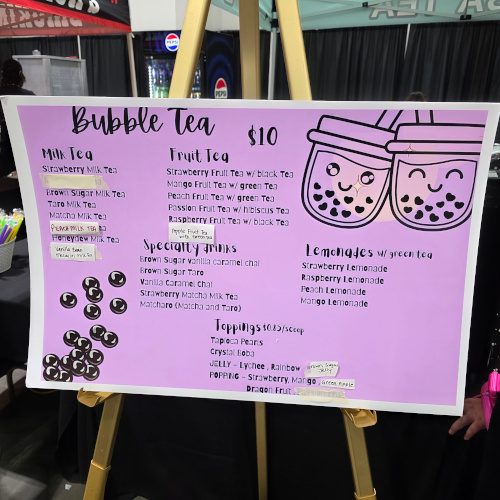 Bubble Tea
$10
Milk Tea
Strawberry Milk Tea
Brown Sugar Milk Tea
Taro Milk Tea
Matcha Milk Tea
PEACH MILK TEA
Honeydew Milk Tea
Fruit Tea
Strawberry Fruit Tea w/ black Tea
Mango Fruit Tea w/ green Tea
Peach Fruit Tea w/ green Tea
Passion Fruit Tea w/ hibiscus Tea
Raspberry Fruit Tea w/ black Tea
Apple Fruit Tea
with Green tea
Specialty drinks
Brown Sugar Vanilla Caramel Chai
Brown Sugar Taro
Vanilla Caramel Chai
Strawberry Matcha Milk Tea
Matcharo (Matcha and Taro)
Lemonades w/ green tea
Strawberry Lemonade
Raspberry Lemonade
Peach Lemonade
Mango Lemonade
Toppings $0.85/scoop
Tapioca Pearls
Crystal Boba
JELLY - Lychee, Rainbow, Brown Sugar Jelly
POPPING - Strawberry, Mango, Green Apple
Dragon Fruit
pepsi
pepsi
TEA